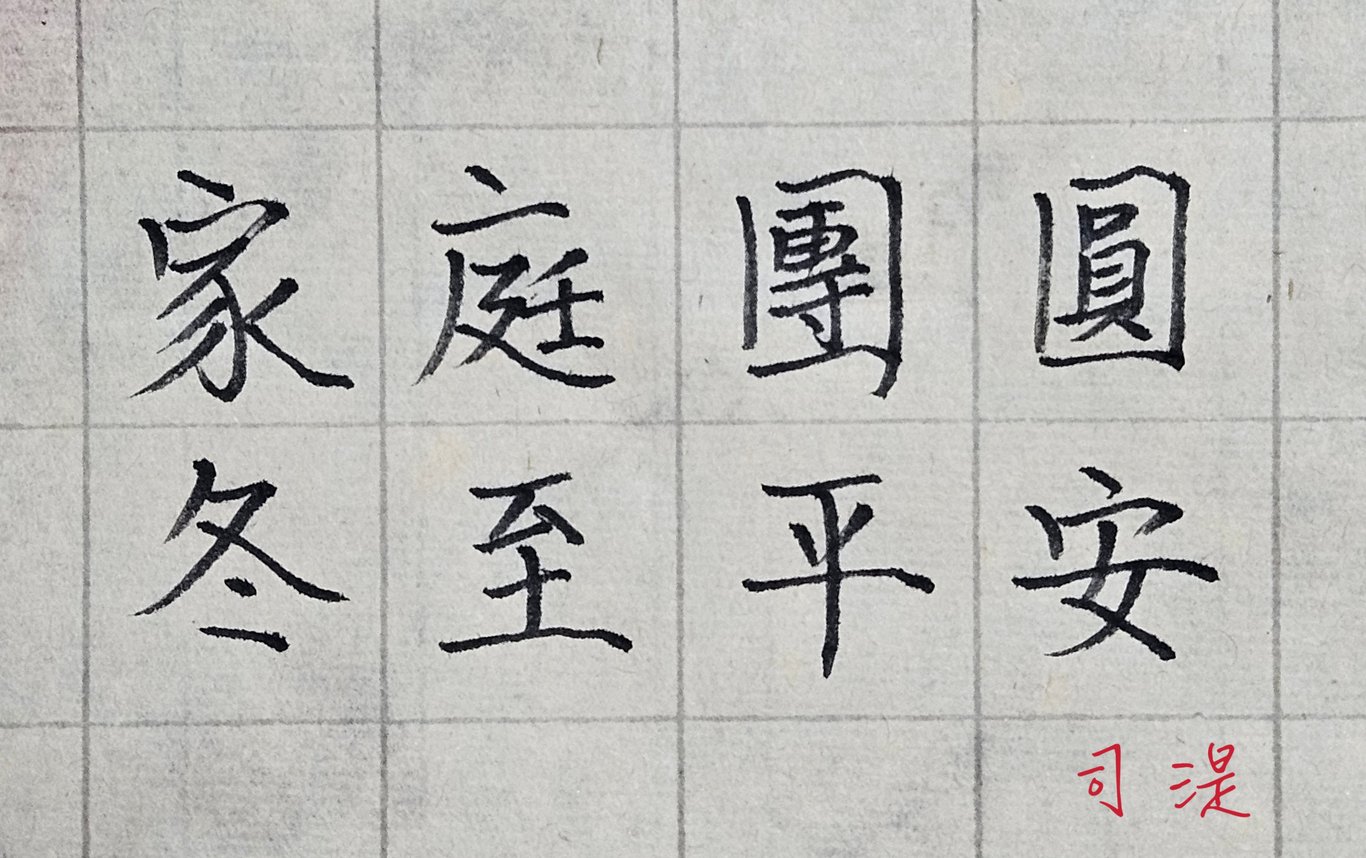 家庭團圓
冬至平安
司湜